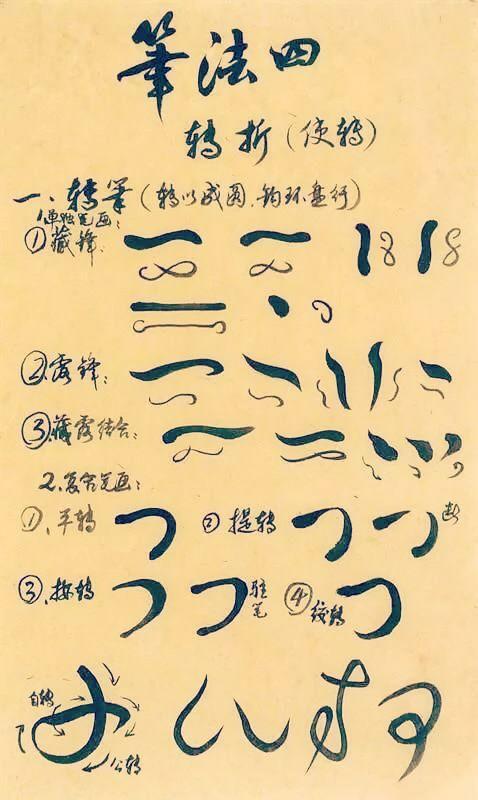 筆法四
转折（使转）
一、转筆（转以成圆，钩环盘行）
1.单独笔画：
①藏锋：
②露锋：
③藏露结合：
2.复合笔画：
①、平转
②提转
断
③、按转
驻笔
④绞转
自转
公转